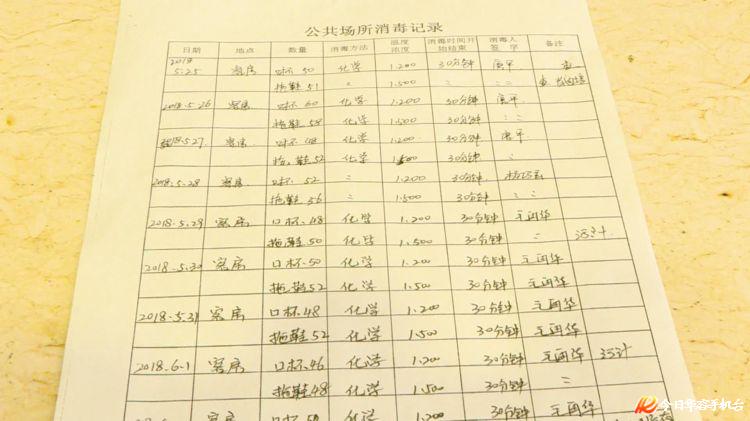 公共场所消毒记录
日期 地点 数量 消毒方法 温度浓度 消毒时间开始结束 消毒人签字 备注
2018 5.25 客房 口杯 50 化学 1:200 30分钟 唐平
拖鞋 51 〃 1:500 〃 〃
2018.5.26 客房 口杯 60 化学 1:200 30分钟 唐平
拖鞋 58 化学 1:500 30分钟 〃
5.27 客房 口杯 48 化学 1:200 30分钟 唐平
拖鞋 52 化学 30分钟 〃
2018.5.28 客房 口杯 52 〃 1:200 30分钟
拖鞋 56 〃 1:500 30分钟 〃
2018.5.29 客房 口杯.48 化学 1:200 30分钟
拖鞋.50 化学 1:500 30分钟 〃
2018.5.30 客房 口杯.50 化学 1:200 30分钟
拖鞋52 化学 1:500 30分钟
2018.5.31 客房 口杯.48 化学 1:200 30分钟
拖鞋52 化学 1:500 30分钟
2018.6.1 客房 口杯.46 化学 1:200 30分钟
拖鞋48 化学 1:500 30分钟 〃
客房 口杯 化学 1:200 30分钟
今日华容手机台